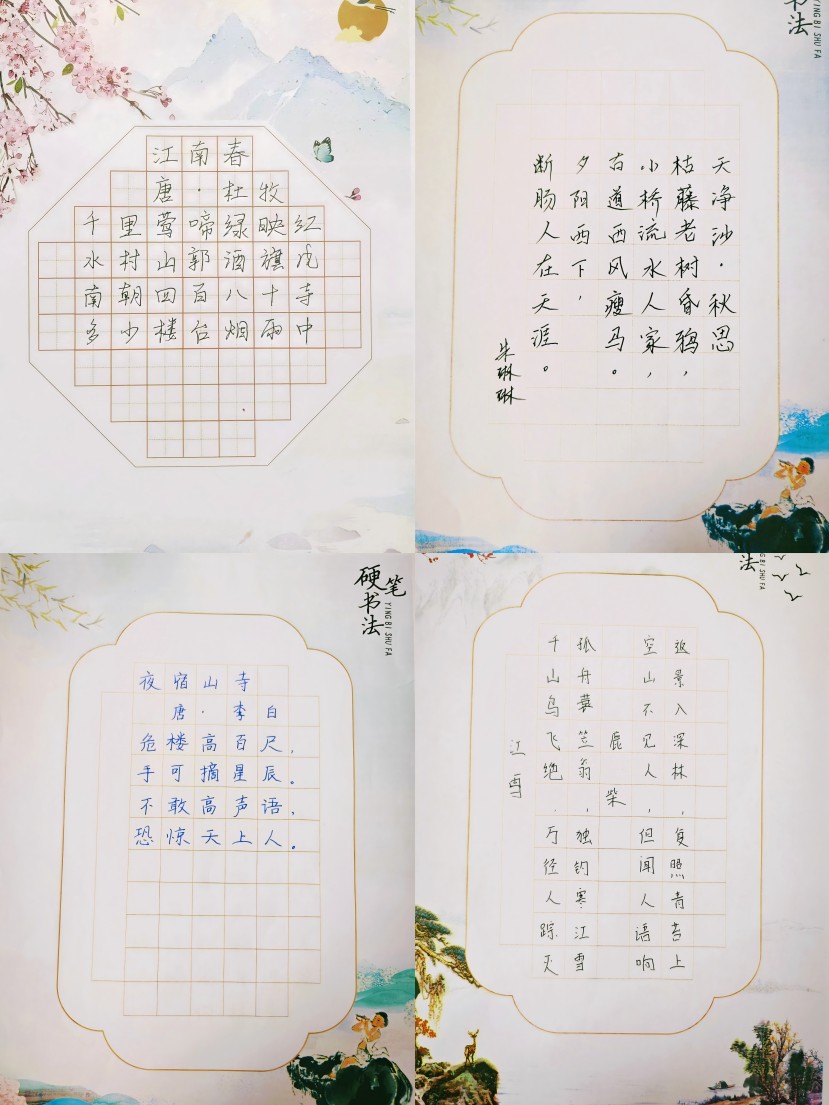 江南春
唐·杜牧
千里莺啼绿映红
水村山郭酒旗风
南朝四百八十寺
多少楼台烟雨中
书法
YING BI SHU FA
天净沙·秋思
枯藤老树昏鸦，
小桥流水人家，
古道西风瘦马。
夕阳西下，
断肠人在天涯。
朱琳琳
硬笔书法
YING BI SHU FA
夜宿山寺
唐·李白
危楼高百尺，
手可摘星辰。
不敢高声语，
恐惊天上人。
法
NG BI SHU FA
江雪
千山鸟飞绝，万径人踪灭
孤舟蓑笠翁，独钓寒江雪
鹿柴
空山不见人，但闻人语响
返景入深林，复照青苔上